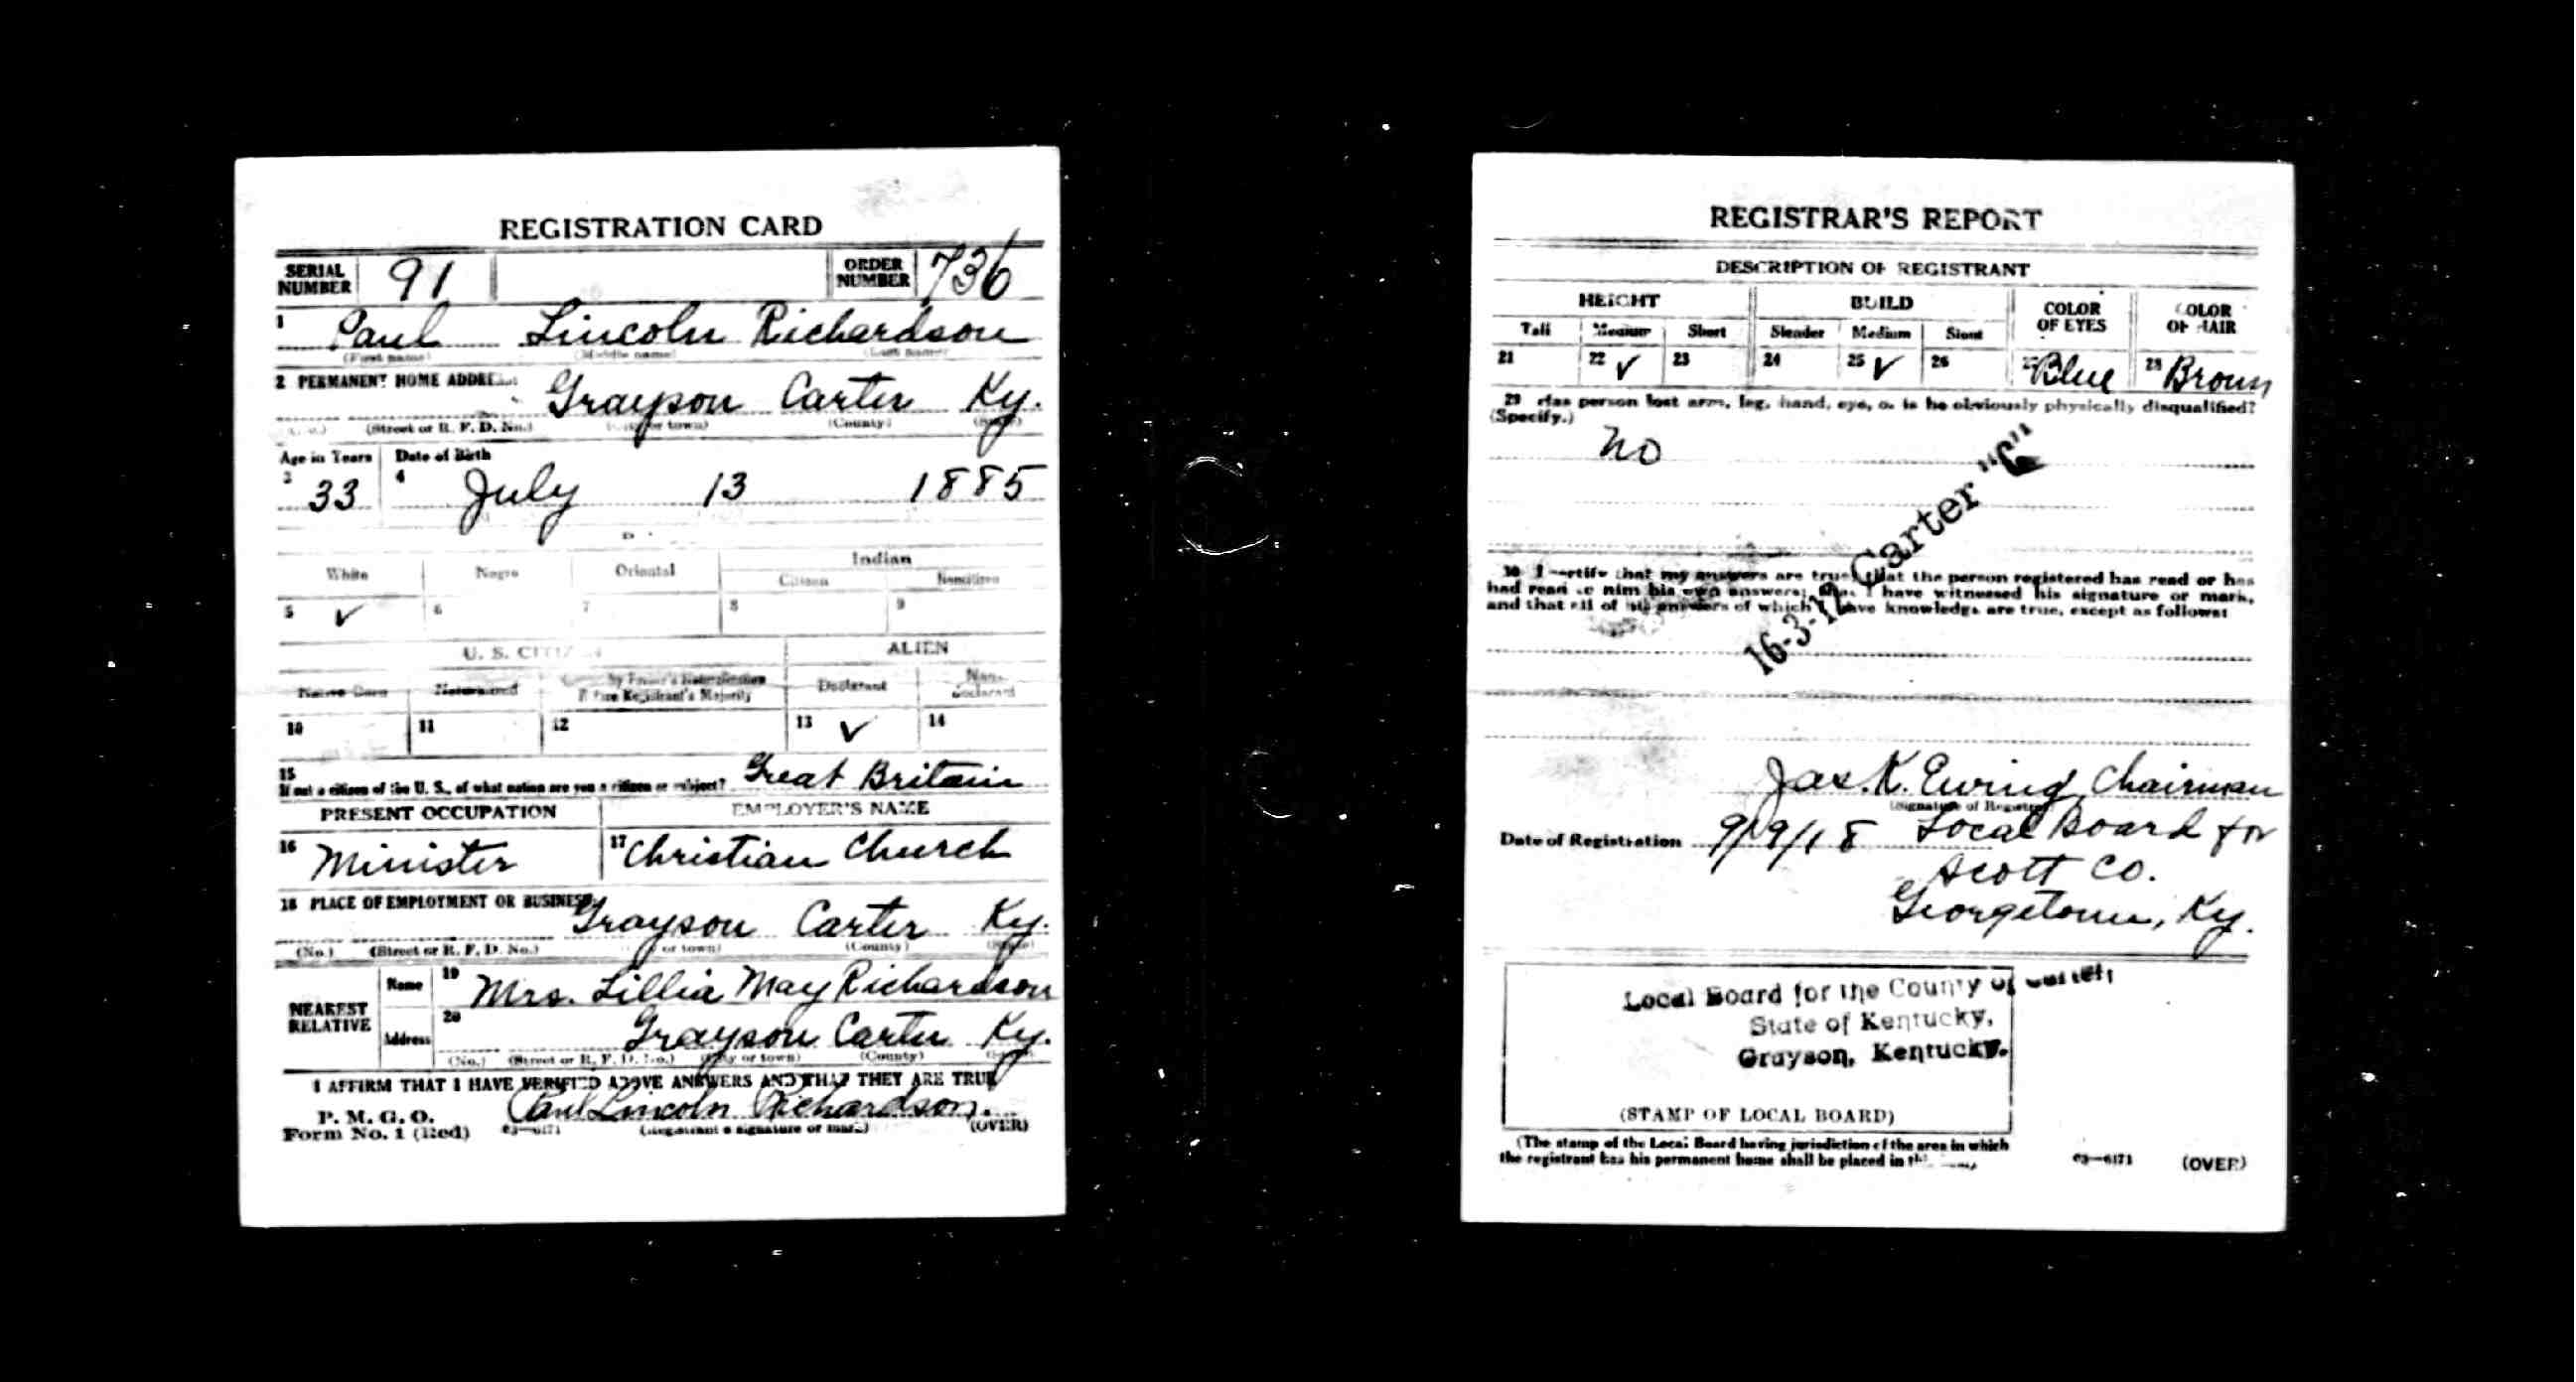 REGISTRATION CARD
SERIAL NUMBER 91 ORDER NUMBER 736
1 Paul Lincoln Richardson
(First name) (Middle name) (Last name)
2 PERMANENT HOME ADDRESS:
Grayson Carter Ky.
(Street or R. F. D. No.) (City or town) (County) (State)
Age in Years Date of Birth
3 33 4 July 13 1885
Indian
White Negro Oriental Citizen
5 ✓ 6 7 8 9
U. S. CITIZEN ALIEN
Native Born Naturalized Declarant Non-declarant
10 11 12 13 ✓ 14
15 If not a citizen of the U. S., of what nation are you a citizen or subject? Great Britain
PRESENT OCCUPATION EMPLOYER'S NAME
16 Minister 17 Christian Church
18 PLACE OF EMPLOYMENT OR BUSINESS:
Grayson Carter Ky.
(No.) (Street or R. F. D. No.) (City or town) (County) (State)
NEAREST RELATIVE Name 19 Mrs. Lillia May Richardson
Address 20 Grayson Carter Ky.
(No.) (Street or R. F. D. No.) (City or town) (County) (State)
I AFFIRM THAT I HAVE VERIFIED ABOVE ANSWERS AND THAT THEY ARE TRUE
P. M. G. O.
Form No. 1 (Red) Paul Lincoln Richardson.
03—6171 (Registrant's signature or mark) (OVER)
REGISTRAR'S REPORT
DESCRIPTION OF REGISTRANT
HEIGHT BUILD COLOR OF EYES COLOR OF HAIR
Tall Medium Short Slender Medium Stout
21 22 ✓ 23 24 25 ✓ 26 27 Blue 28 Brown
29 Has person lost arm, leg, hand, eye, or is he obviously physically disqualified?
(Specify.)
no
16-3-12 Carter "C"
30 I certify that my answers are true; that the person registered has read or has
had read to him his own answers; that I have witnessed his signature or mark,
and that all of his answers of which I have knowledge are true, except as follows:
Jas. K. Ewing, Chairman
(Signature of Registrar)
Date of Registration 9/19/18 Local Board for
Scott Co.
Georgetown, Ky.
Local Board for the County of Carter,
State of Kentucky,
Grayson, Kentucky.
(STAMP OF LOCAL BOARD)
(The stamp of the Local Board having jurisdiction of the area in which
the registrant has his permanent home shall be placed in this
03—6171 (OVER)